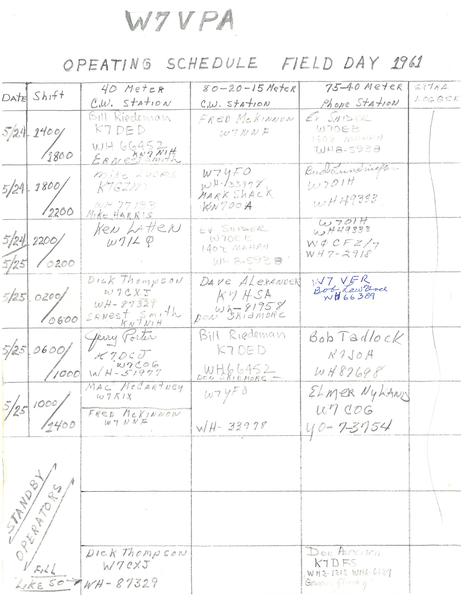 W7VPA
OPEATING SCHEDULE FIELD DAY 1961
DATE Shift
40 METER
C.W. STATION
80-20-15 METER
C.W. STATION
75-40 METER
Phone STATION
EXTRA
LOGBOOK
5/24 1400/1800
Bill Riedeman
K7DED
WH 66452
KN7NIH
Ernest Smith
FRED McKINNON
W7NNF
W7OEB
WH2-5938
5/24 1800/2200
MIKE HARRIS
W7YFO
WH-33978
MARK SHACK
KN7OOA
W7OIH
WH49333
5/24 5/25 2200/0200
Ken Litten
W7ILQ
WH2-5938
W7OIH
WH49333
W4CFZ/7
WH7-2918
5/25 0200/0600
DICK Thompson
W7CXJ
WH-87329
ERNEST SMITH
KN7NIH
DAVE ALEXANDER
K7HSA
WH-81958
DON SKIDMORE
W7VER
WH66389
5/25 0600/1000
Jerry Porter
K7DCJ
W7COG
WH-51977
Bill Riedeman
K7DED
WH66452
DON SKIDMORE
Bob Tadlock
WH82698
5/25 1000/1400
MAC McCARTNEY
W7KIX
FRED McKINNON
W7NNF
W7YFO
WH-33978
ELMER NYLAND
W7COG
YO-73754
STANDBY
OPERATORS
FILL
LIKE SO →
DICK Thompson
W7CXJ
WH-87329
K7DFS